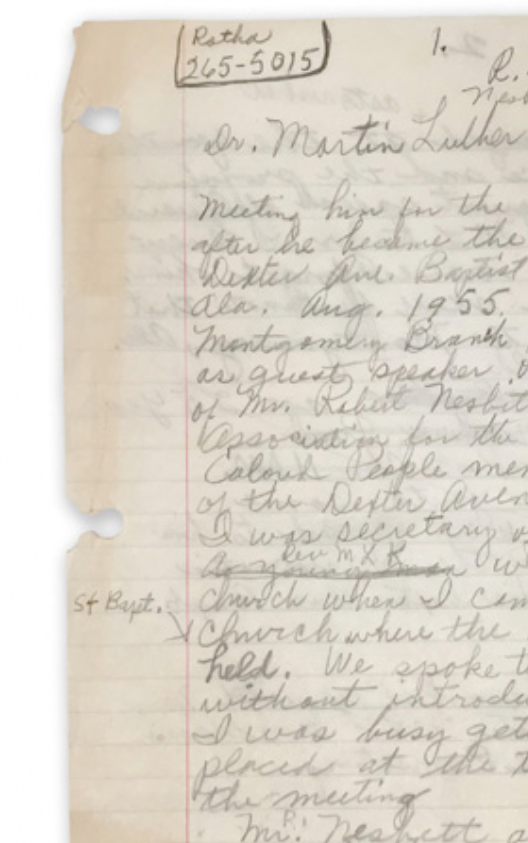 Rotha
265-5015
1.
R.
Nesb
Dr. Martin Luther
Meeting him for the
after he became the
Dexter Ave. Baptist
Ala. Aug. 1955.
Montgomery Branch
as guest speaker
of Mr. Robert Nesbit
Association for the
Colored People mem
of the Dexter Aven
I was secretary o
Rev M L K
As young man w
St Bapt.
Church when I cam
Church where the
held. We spoke t
without introdu
I was busy get
placed at the t
the meeting
Mr. Nesbett a